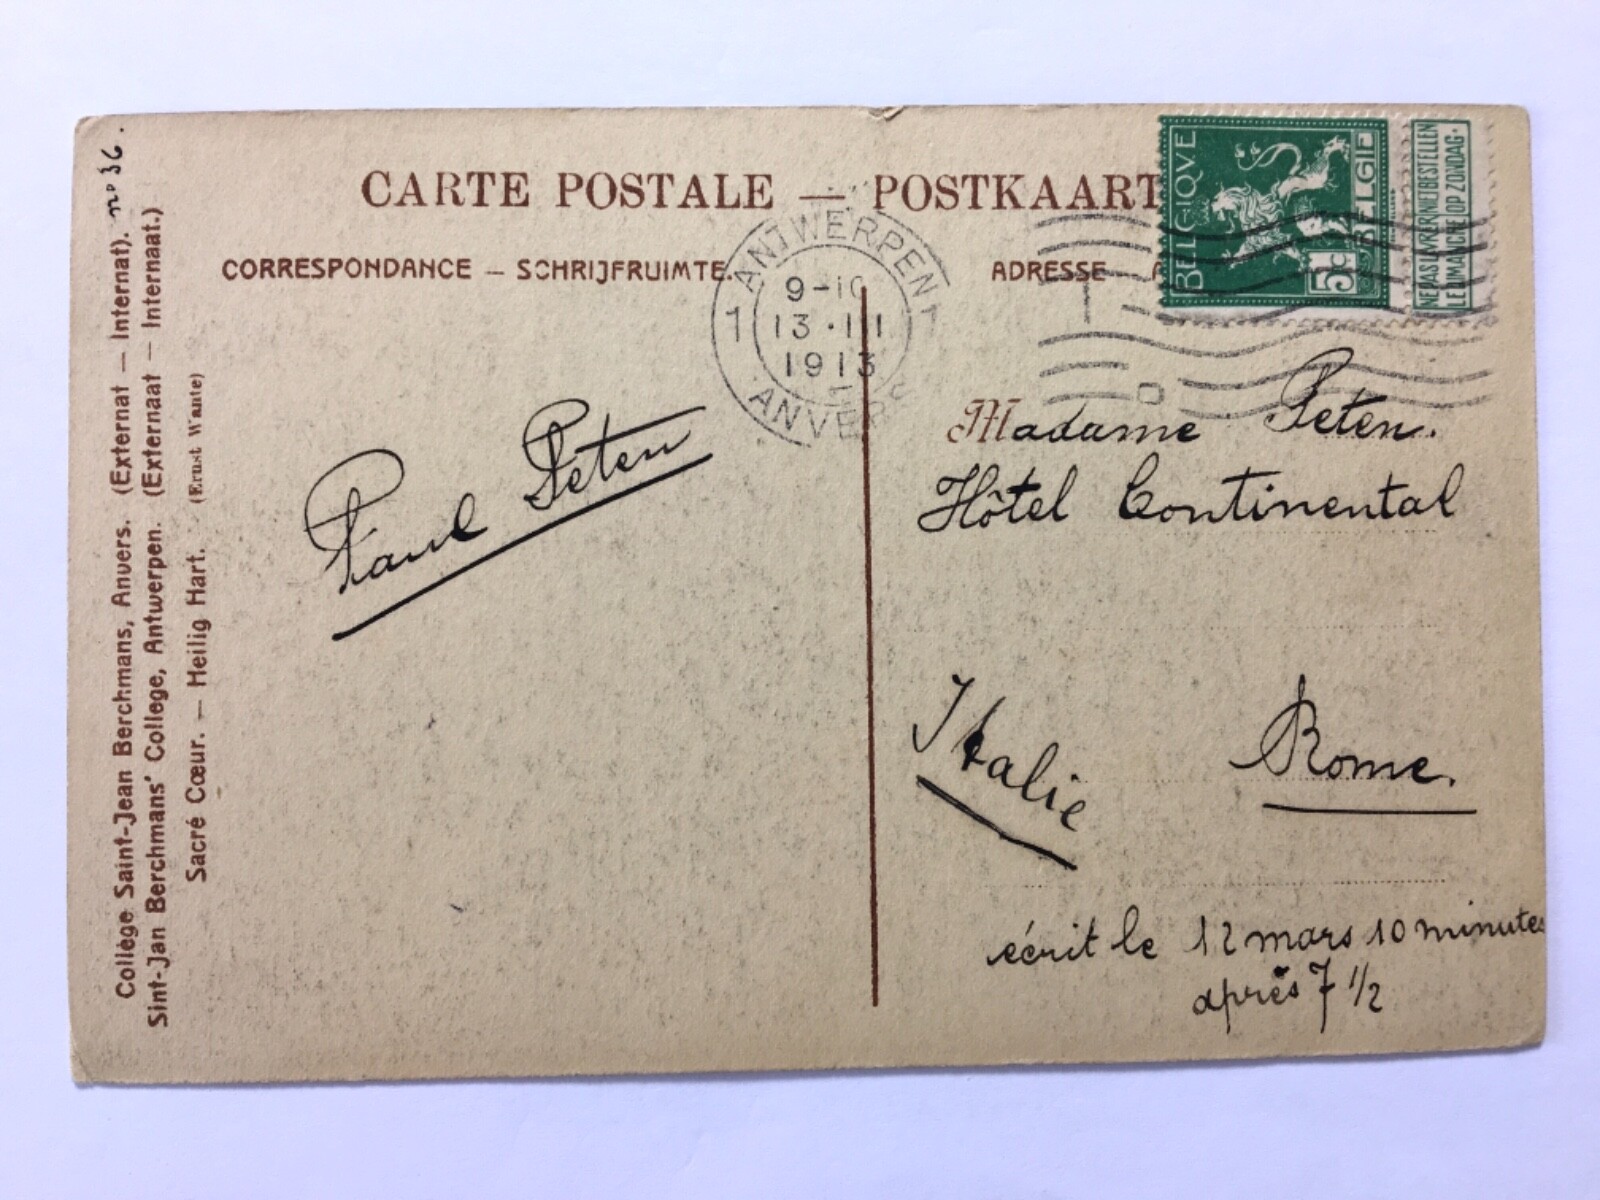 CARTE POSTALE — POSTKAART
CORRESPONDANCE — SCHRIJFRUIMTE.
ADRESSE
BELGIQVE
5c
BELGIË
NE PAS LIVRER LE DIMANCHE
NIET BESTELLEN OP ZONDAG
ANTWERPEN
1 1
9-10
13·III
1913
ANVERS
Paul Peten
Madame Peten.
Hôtel Continental
Italie
Rome.
écrit le 12 mars 10 minutes
après 7 1/2
Collège Saint-Jean Berchmans, Anvers. (Externat — Internat). n° 36.
Sint-Jan Berchmans' College, Antwerpen. (Externaat — Internaat.)
Sacré Cœur. — Heilig Hart. (Ernst Wante)